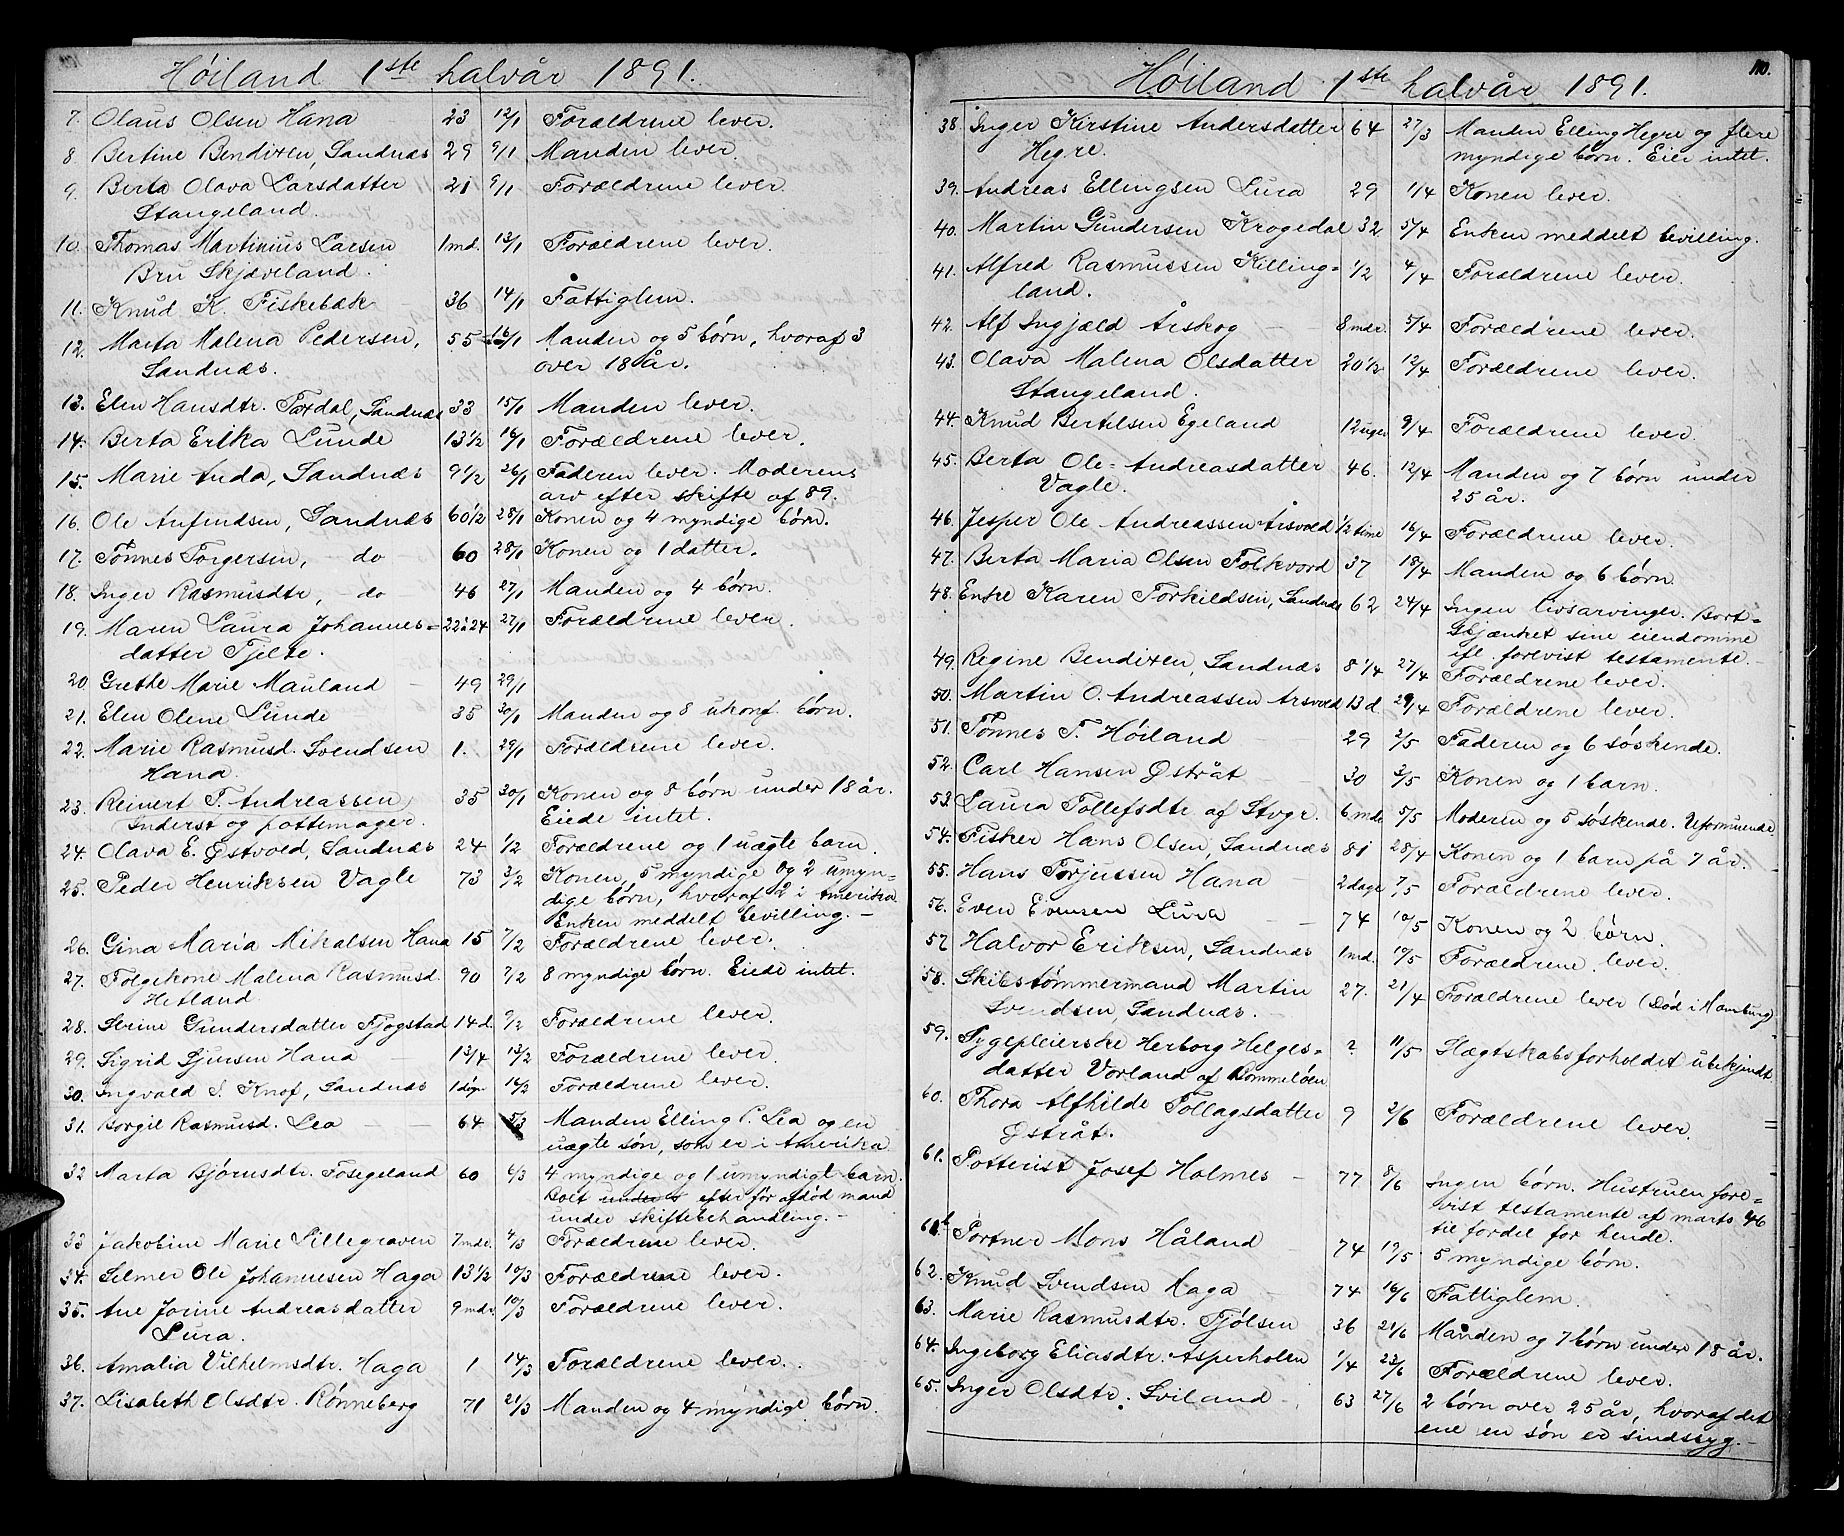 Høiland 1ste halvår 1891.
7. Olaus Olsen Hana 23 12/1 Forældrene lever.
8. Bertine Bendixen, Sandnæs 29 9/1 Manden lever.
9. Berta Olava Larsdatter 21 9/1 Forældrene lever.
Stangeland.
10. Thomas Martinius Larsen 1 md. 13/1 Forældrene lever.
Bru Skjæveland.
11. Knud K. Fiskebæk 36 14/1 Fattiglem.
12. Marta Malena Pedersen, 55 16/1 Manden og 5 børn, hvoraf 3
Sandnæs. over 18 År.
13. Elen Hansdtr. Taxdal, Sandnæs 33 15/1 Manden lever.
14. Berta Erika Lunde 13 1/2 16/1 Forældrene lever.
15. Marie Auda, Sandnæs 9 1/2 26/1 Faderen lever. Moderens
arv efter skifte af 89.
16. Ole Anfindsen, Sandnæs 60 1/2 28/1 Konen og 4 myndige børn.
17. Tønnes Torgersen, - do 60 28/1 Konen og 1 datter.
18. Inger Rasmusdtr, - do 46 27/1 Manden og 4 børn.
19. Maren Laura Johannes= 22 à 24 27/1 Forældrene lever.
datter Tjelte.
20. Grethe Marie Mauland - 49 29/1
21. Elen Olene Lunde - 35 30/1 Manden og 8 ukonf. børn.
22. Marie Rasmusd. Svendsen 1. 29/1 Forældrene lever.
Hana.
23. Reinert T. Andreassen, 35 30/1 Konen og 8 børn under 18 år.
Inderst og pottemager. Eiede intet.
24. Olava E. Østvold, Sandnæs 24 1/2 Forældrene og 1 uægte barn.
25. Peder Henriksen Vagle 73 3/2 Konen, 5 myndige og 2 umyn=
dige børn, hvoraf 2 i Amerika.
Enken meddelt bevilling. -
26. Gina Maria Mikalsen Hana 15 7/2 Forældrene lever.
27. Følgekone Malena Rasmusd. 90 7/2 8 myndige børn. Eiede intet.
Hetland.
28. Serine Gundersdatter Fjogstad 14 d. 9/2 Forældrene lever.
29. Sigrid Sjursen Hana - 1 3/4 13/2 Forældrene lever.
30. Ingvald S. Knof, Sandnæs 1 døgn 16/2 Forældrene lever.
31. Borgil Rasmusd. Lea - - 64 5/3 Manden Elling P. Lea og en
uægte søn, som er i Amerika.
32 Marta Bjørnsdtr. Fosegeland 60 6/3 4 myndige og 1 umyndigt barn.
Boet under s efter før afdød mand
under skiftebehandling. -
33 Jakobine Marie Lillegraven 7 mdr. 4/3 Forældrene lever.
34. Selmer Ole Johannesen Haga 13 1/2 10/3 Forældrene lever.
35. Ane Jorine Andreasdatter 9 mdr. 10/3 Forældrene lever.
Lura.
36. Amalia Vilhelmsdtr. Haga 1 14/3 Forældrene lever.
37. Lisabeth Olsdtr. Rønneberg 71 21/3 Manden og 4 myndige børn.
110.
Høiland 1ste halvår 1891.
38. Inger Kirstine Andersdatter 64 27/3 Manden Elling Hegre og flere
Hegre. myndige børn. Eier intet.
39. Andreas Ellingsen Lura 29 1/4 Konen lever.
40. Martin Gundersen Krogedal 32 5/4 Enken meddelt bevilling.
41. Alfred Rasmussen Killing= 1/2 4/4 Forældrene lever.
land.
42. Alf Ingjæld Årskog - 8 mdr. 5/4 Forældrene lever.
43. Olava Malena Olsdatter 20 1/2 12/4 Forældrene lever.
Stangeland.
44. Knud Bertelsen Egeland 12 uger 9/4 Forældrene lever.
45. Berta Ole=Andreasdatter 46. 12/4 Manden og 7 børn under
Vagle. 25 år.
46. Jesper Ole Andreassen Arsvold 1/2 time 16/4 Forældrene lever.
47. Berta Maria Olsen Folkvord 37 18/4 Manden og 6 børn.
48. Enke Karen Torkildsen, Sandnæs 62 24/4 Ingen livsarvinger. Bort=
skjænket sine eiendomme
ifl. forevist testamente. -
49. Regine Bendixen, Sandnæs 8 1/4 27/4 Forældrene lever.
50. Martin O. Andreassen Arsvold 13 d. 29/4 Forældrene lever.
51. Tønnes T. Høiland - 29 2/5 Faderen og 6 søskende.
52. Carl Hansen Østråt - 30 3/5 Konen og 1 barn.
53. Laura Tollefsdtr. af Stvgr. 6 mdr 5/5 Moderen og 5 søskende. Uformuende
54. Fisker Hans Olsen, Sandnæs 81 28/4 Konen og 1 barn på 7 år.
55. Hans Torjussen Hana - 2 dage 7/5 Forældrene lever.
56. Even Evensen Lura - 74 10/5 Konen og 2 børn.
57 Halvor Eriksen, Sandnæs 1 md. 17/5 Forældrene lever.
58. Skibstømmermand Martin 27. 21/4 Forældrene lever (Død i Hamburg)
Svendsen, Sandnæs. -
59. Sygepleierske Herborg Helges= ? 11/5 Slægtskabsforholdet ubekjendt
datter Vorland af
60. Thora Alfhilde Tollagsdatter 9 2/6 Forældrene lever. =
Østråt.
61. Potterist Josef Holmes - 77 8/6 Ingen børn. Hustruen fore=
vist testamente af marts 46
til fordel for hende.
61b Portner Mons Håland 74 19/5 5 myndige børn.
62. Knud Svendsen Haga - 74 16/6 Fattiglem.
63. Marie Rasmusdtr. Tjølsen 36 21/6 Manden og 7 børn under 18 år.
64. Ingeborg Eliasdtr. Asperholen 1/4 23/6 Forældrene lever.
65. Inger Olsdtr. Sviland - 63 27/6 2 børn over 25 år, hvoraf det
ene en søn er sindssyg. -